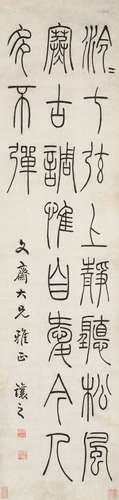 泠〻七弦上靜聽松風
寒古調惟自愛今人
多不彈
文齋大兄雅正 讓之